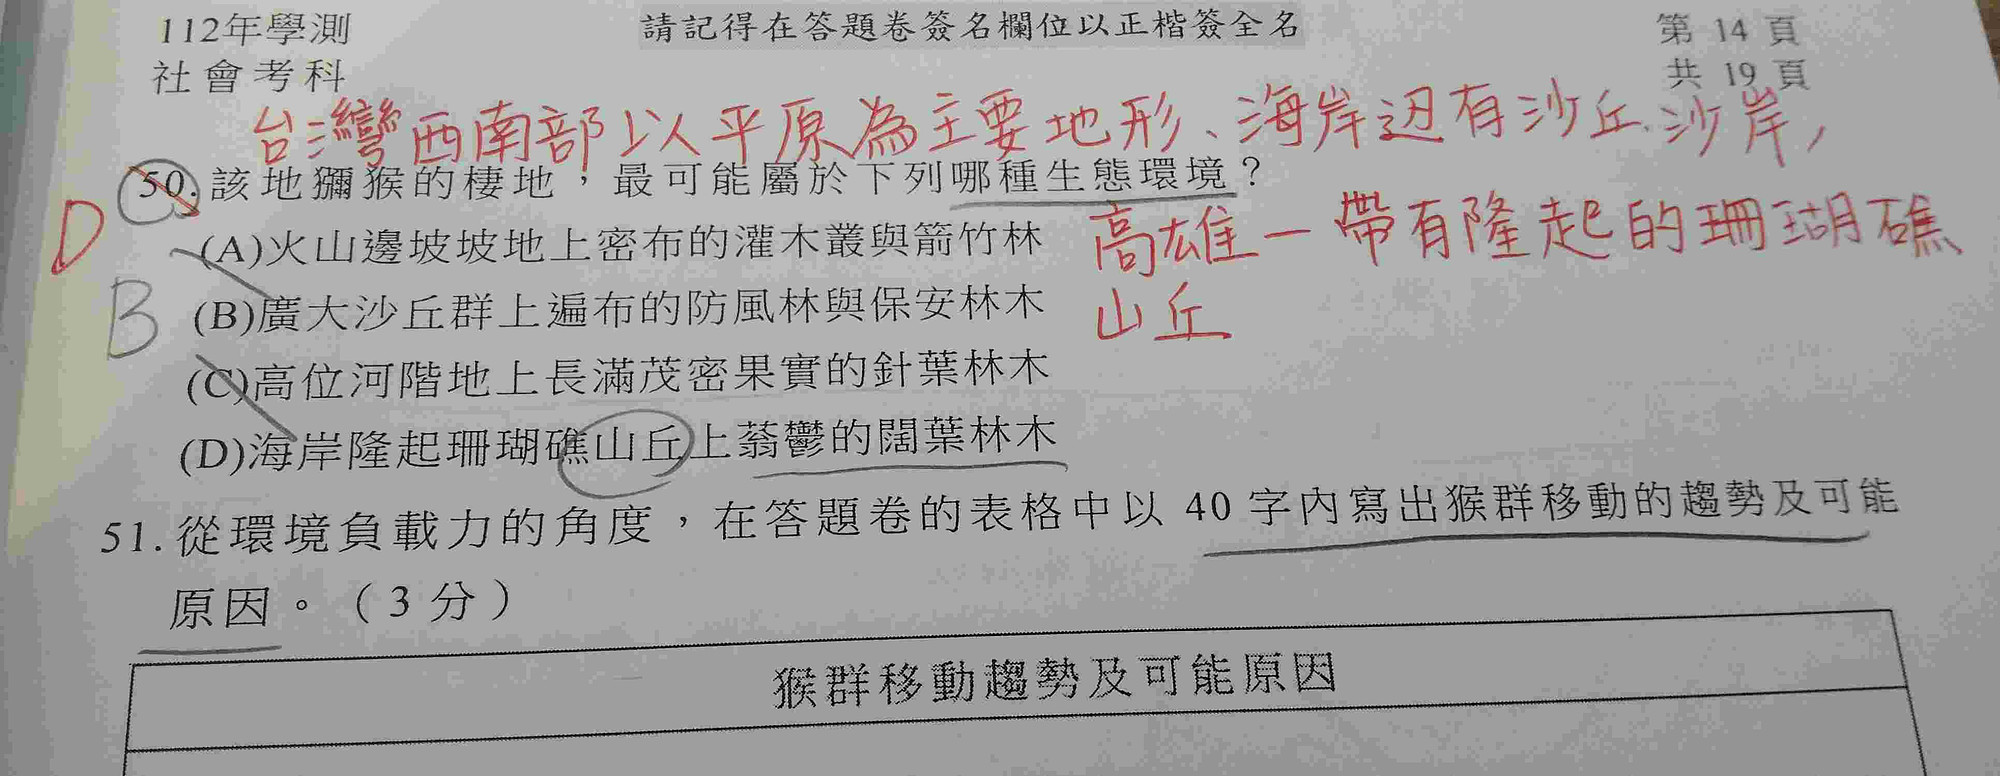 112年學測
社會考科
請記得在答題卷簽名欄位以正楷簽全名
第 14 頁
共 19 頁
台灣西南部以平原為主要地形、海岸辺有沙丘、沙岸,
50.該地獼猴的棲地，最可能屬於下列哪種生態環境？
D
(A)火山邊坡坡地上密布的灌木叢與箭竹林
高雄一帶有隆起的珊瑚礁
山丘
B
(B)廣大沙丘群上遍布的防風林與保安林木
(C)高位河階地上長滿茂密果實的針葉林木
(D)海岸隆起珊瑚礁山丘上蓊鬱的闊葉林木
51.從環境負載力的角度，在答題卷的表格中以 40 字內寫出猴群移動的趨勢及可能
原因。（3 分）
猴群移動趨勢及可能原因